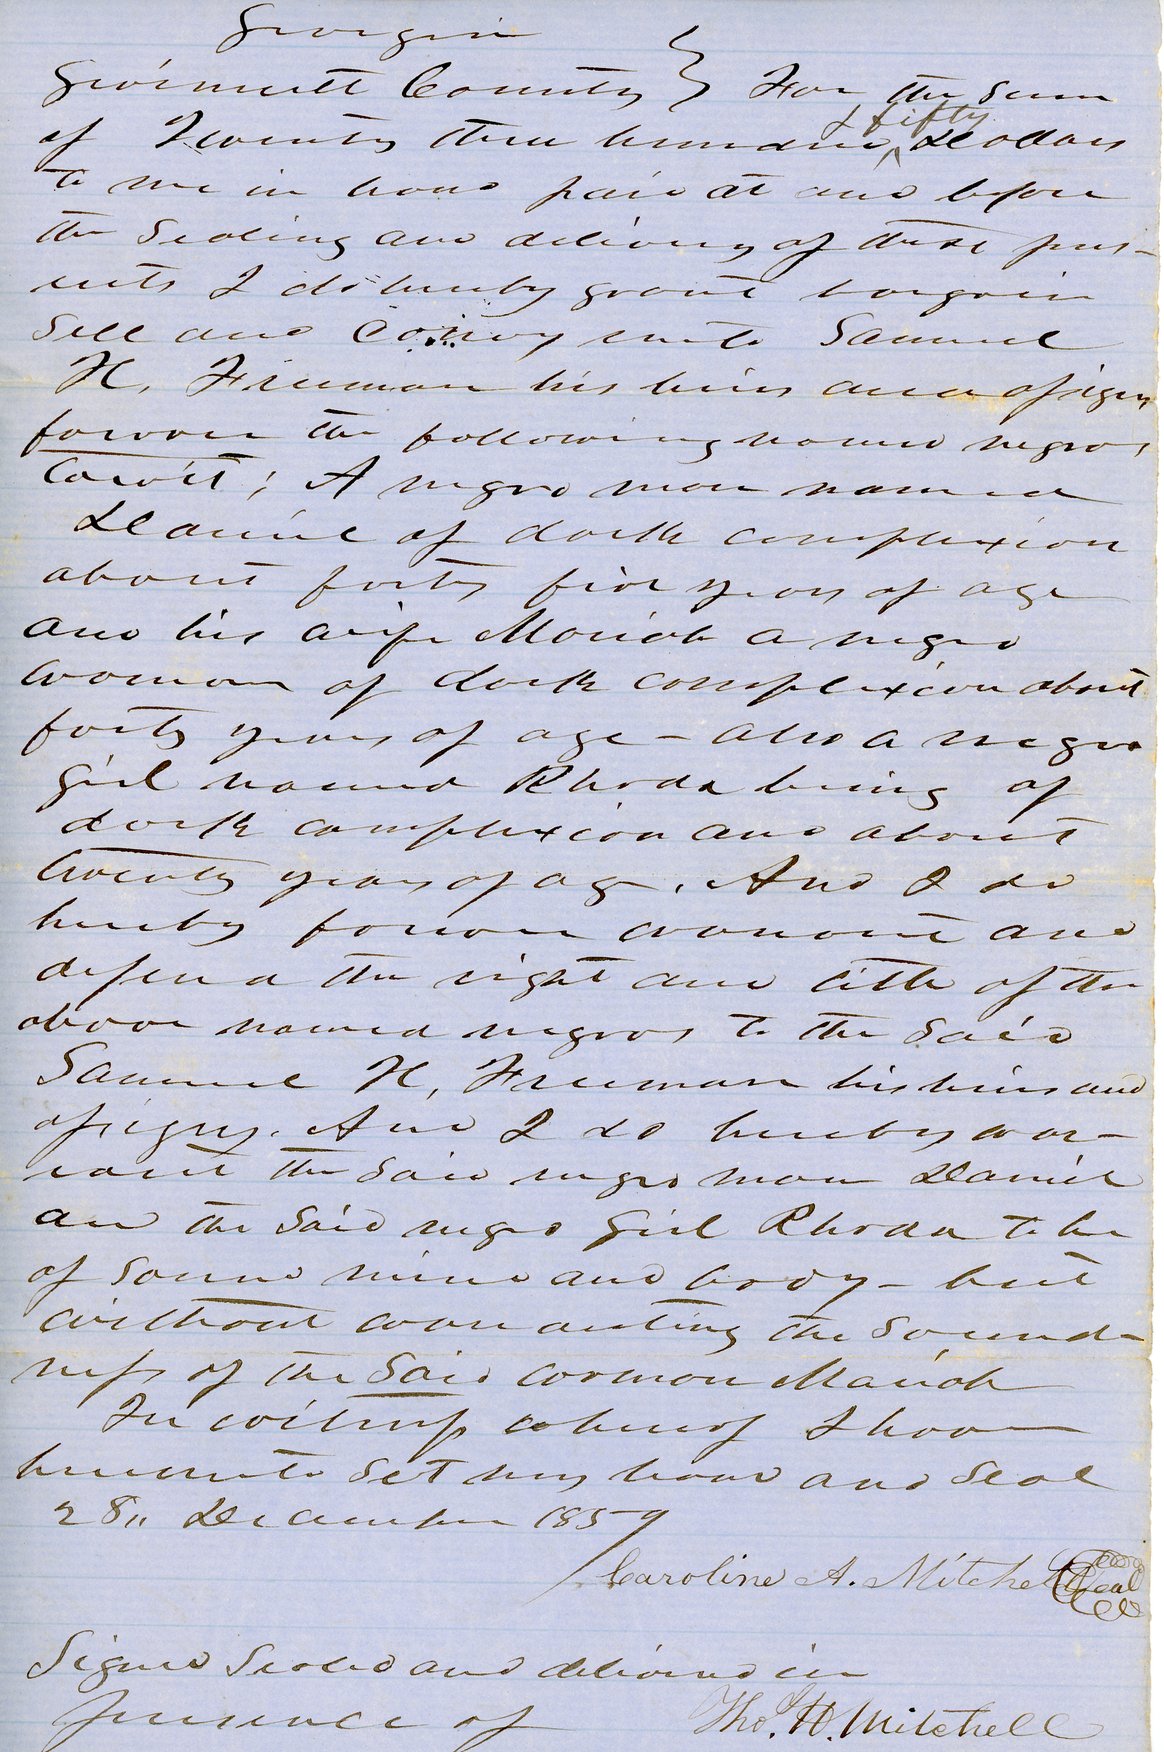 Georgia
Gwinnett County } For the Sum
of Twenty three hundred & fifty Dollars
to me in hand paid at and before
the Sealing and delivery of these pres-
ents I do hereby grant bargain
Sell and Convey unto Samuel
H, Freeman his heirs and assigns
forever the following named negros
towit; A negro man named
Daniel of dark complexion
about forty five years of age
and his wife Mariah a negro
woman of dark complexion about
forty years of age – also a negro
girl named Rhoda being of
dark complexion and about
twenty years of age. And I do
hereby forever warrant and
defend the right and title of the
above named negros to the Said
Samuel H, Freeman his heirs and
assigns. And I do hereby war-
rant the Said negro man Daniel
and the Said negro Girl Rhoda to be
of Sound mind and body – but
without warranting the Sound-
ness of the Said woman Mariah
In witness whereof I have
hereunto Set my hand and Seal
28,, December 1859
Caroline A. Mitchell Seal
Signed Sealed and delivered in
presence of Tho. H. Mitchell